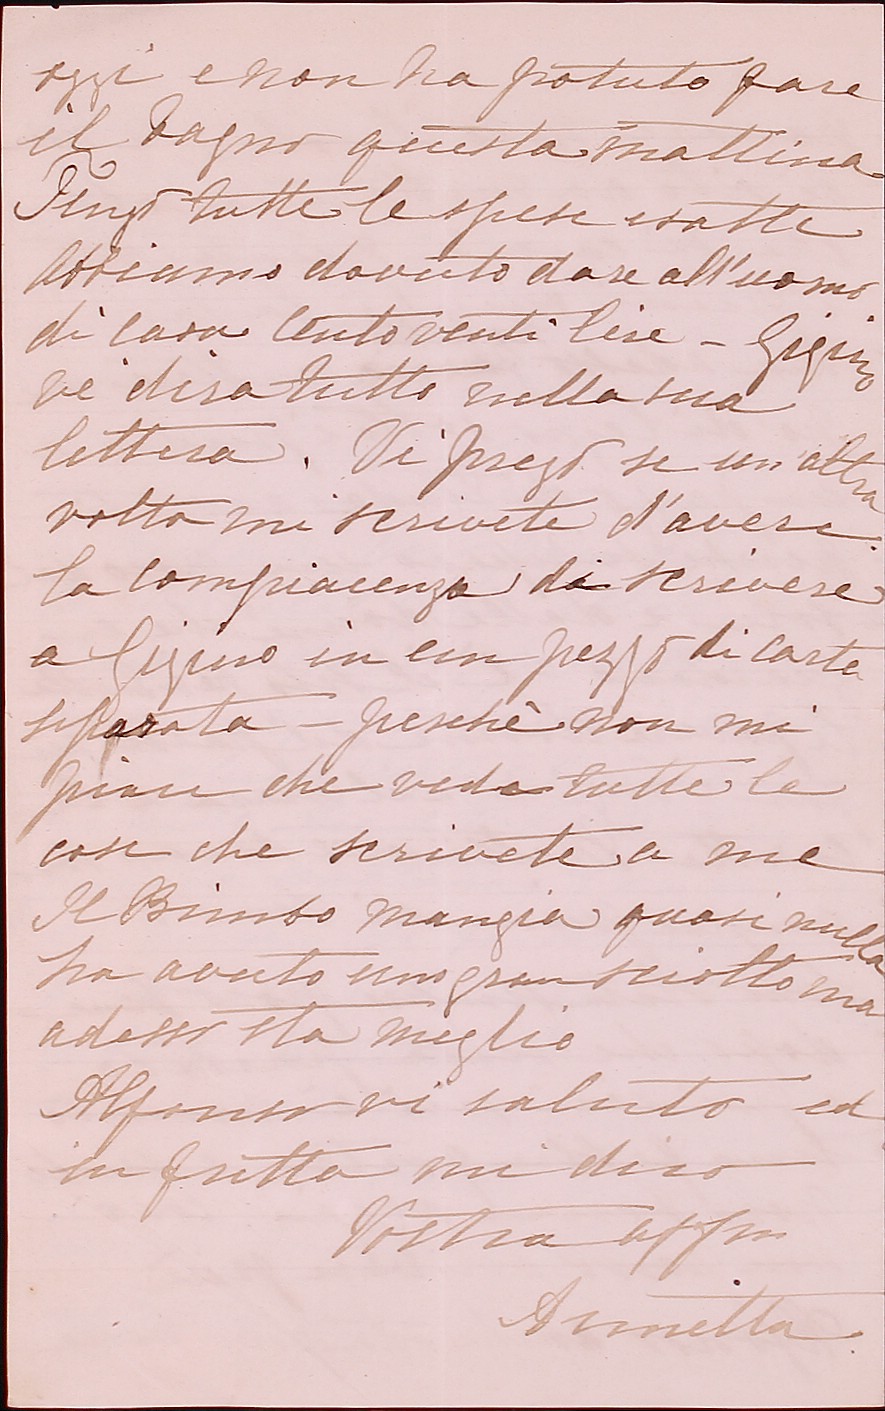 oggi e non ha potuto fare
il bagno questa mattina
Tengo tutte le spese esatte
Abbiamo dovuto dare all'uomo
di casa Cento venti lire – Gigino
vi dirà tutto nella sua
lettera. Vi prego se un'altra
volta mi scrivete d'avere
la compiacenza di scrivere
a Gigino in un pezzo di carta
separata – perchè non mi
piace che veda tutte le
cose che scrivete a me
Il Bimbo mangia quasi nulla
ha avuto uno gran sciolto ma
adesso sta meglio
Alfonso vi saluta ed
in fretta mi dico
Vostra affma
Annetta